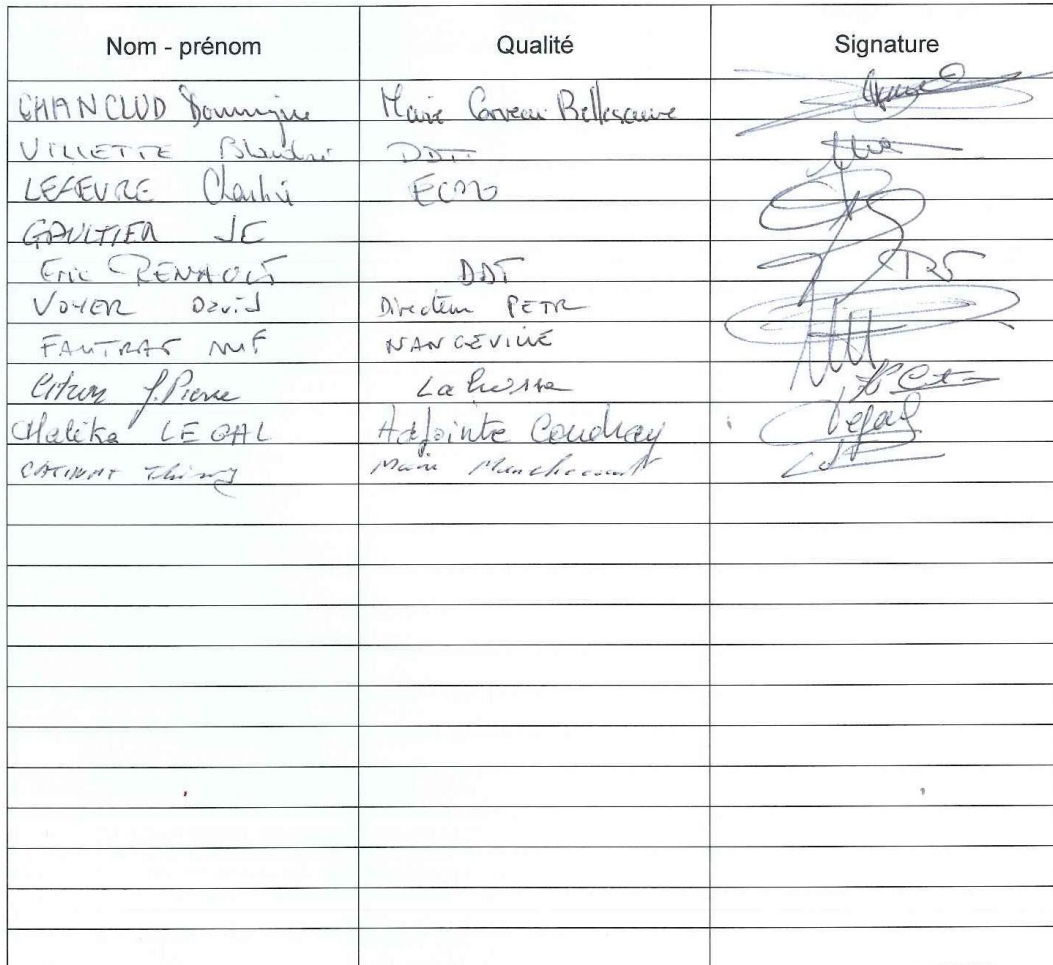 Nom - prénom Qualité Signature
CHANCLUD Dominique Maire Corveau Bellesauve
VILLETTE Blandine DDT
LEFEVRE Charline ECMO
GAULTIER JE
Eric RENAULT DDT
VOYER David Directeur PETR
FAUTRAT NANGEVILLE
Citron J. Pierre
Malika LE GAL Adjointe Coudray Legal
CATINAT Thierry Maire Manchecourt